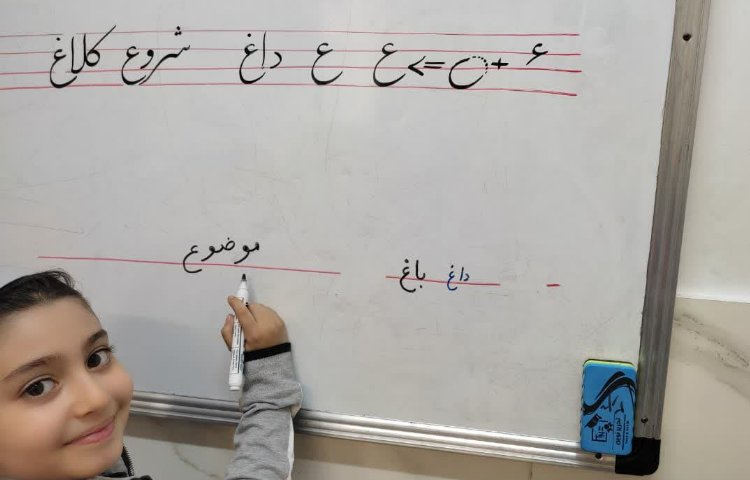 ء + ح => ع ع داغ شروع کلاغ
داغ باغ
موضوع